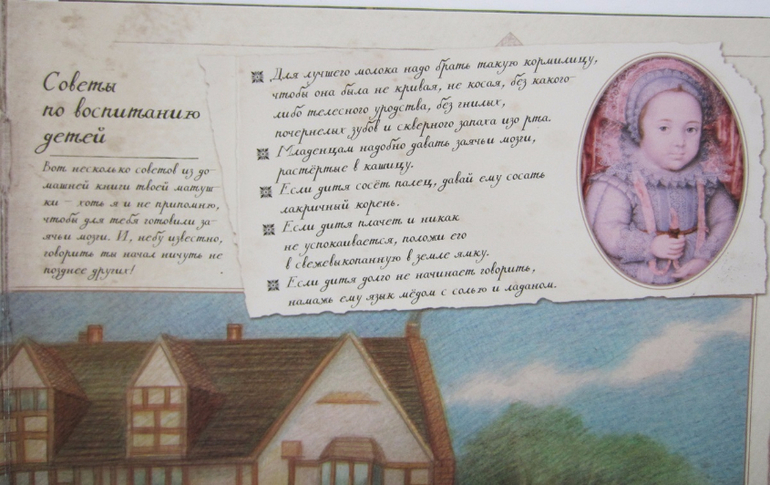 Советы
по воспитанию
детей
Вот несколько советов из до-
машней книги твоей матуш-
ки – хоть я и не припомню,
чтобы для тебя готовили за-
ячьи мозги. И, небу известно,
говорить ты начал ничуть не
позднее других!
Для лучшего молока надо брать такую кормилицу,
чтобы она была не кривая, не косая, без какого-
либо телесного уродства, без гнилых,
почернелых зубов и скверного запаха изо рта.
Младенцам надобно давать заячьи мозги,
растёртые в кашицу.
Если дитя сосёт палец, давай ему сосать
лакричный корень.
Если дитя плачет и никак
не успокаивается, положи его
в свежевыкопанную в земле ямку.
Если дитя долго не начинает говорить,
намажь ему язык мёдом с солью и ладаном.